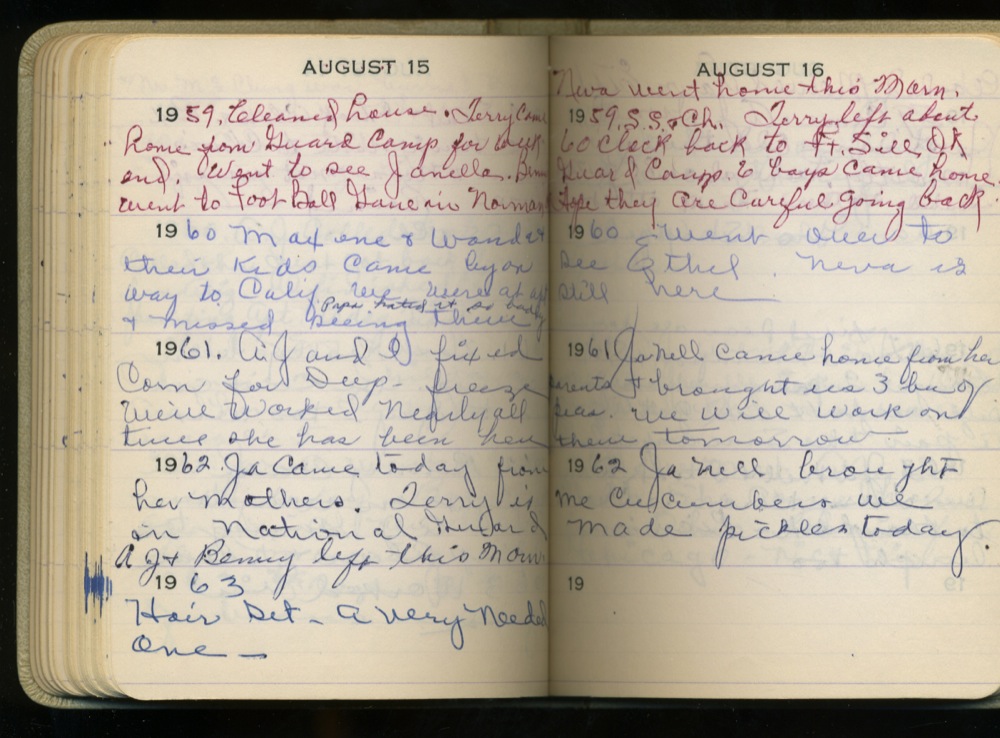 AUGUST 15
1959. Cleaned house. Terry Came
home from Guard Camp for week
end. Went to see Janella. Benny
went to Foot Ball Game in Norman
1960 Maxione & Wanda &
their Kids Came by on
way to Calif. We were at
Papa hated it so badly
& missed seeing them
1961. A.J and I fixed
Corn for Deep-freeze
We've Worked Nearly all
time she has been here
1962. Ja Came today from
her Mothers. Terry is
in National Guard
A J & Benny left this Morn
1963
Hair Set - a very Needed
One -
AUGUST 16
Neva went home this Morn.
1959. S.S. & Ch. Terry left about
6 o clock back to Ft. Sill, OK
Guard Camp. 6 boys came home.
Hope they are Careful Going back.
1960 Went over to
see Ethel. Neva is
still here
1961 Janell came home from her
parents & brought us 3 bu of
peas. we will work on
them tomorrow
1962 Ja Nell brought
me Cucumbers we
made pickles today.
19